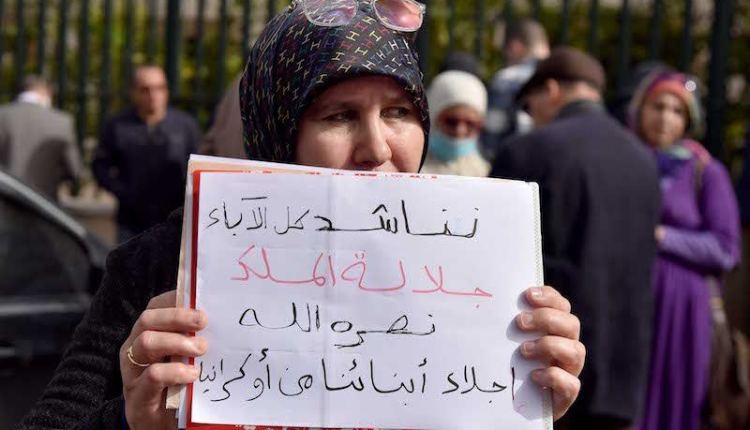 نناشد كل الآباء
جلالة الملك
نصره الله
إجلاء أبنائنا من أوكرانيا